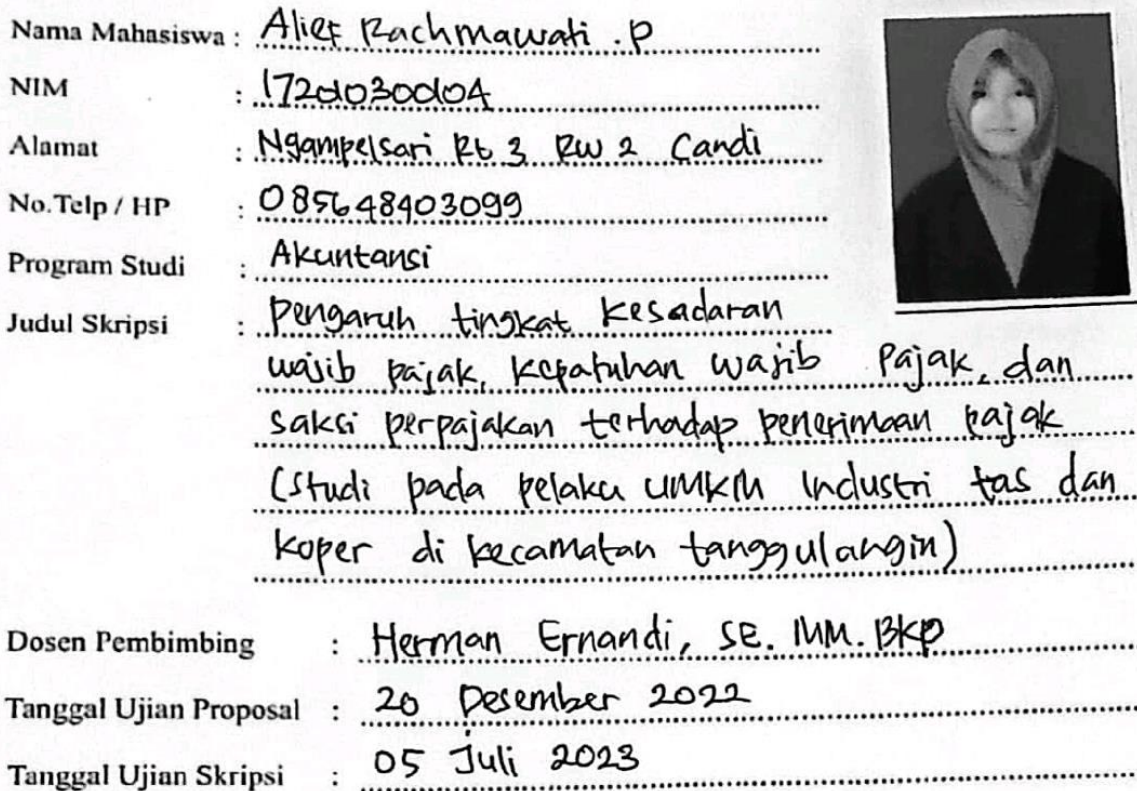 Nama Mahasiswa : Alief Rachmawati . P
NIM : 172010300104
Alamat : Ngampelsari Rt 3 Rw 2 Candi
No.Telp / HP : 085648403099
Program Studi : Akuntansi
Judul Skripsi : Pengaruh tingkat kesadaran
wajib pajak, kepatuhan wajib pajak, dan
saksi perpajakan terhadap penerimaan pajak
(Studi pada pelaku UMKM Industri tas dan
koper di kecamatan tanggulangin)
Dosen Pembimbing : Herman Ernandi, SE. MM. BKP
Tanggal Ujian Proposal : 20 Desember 2022
Tanggal Ujian Skripsi : 05 Juli 2023